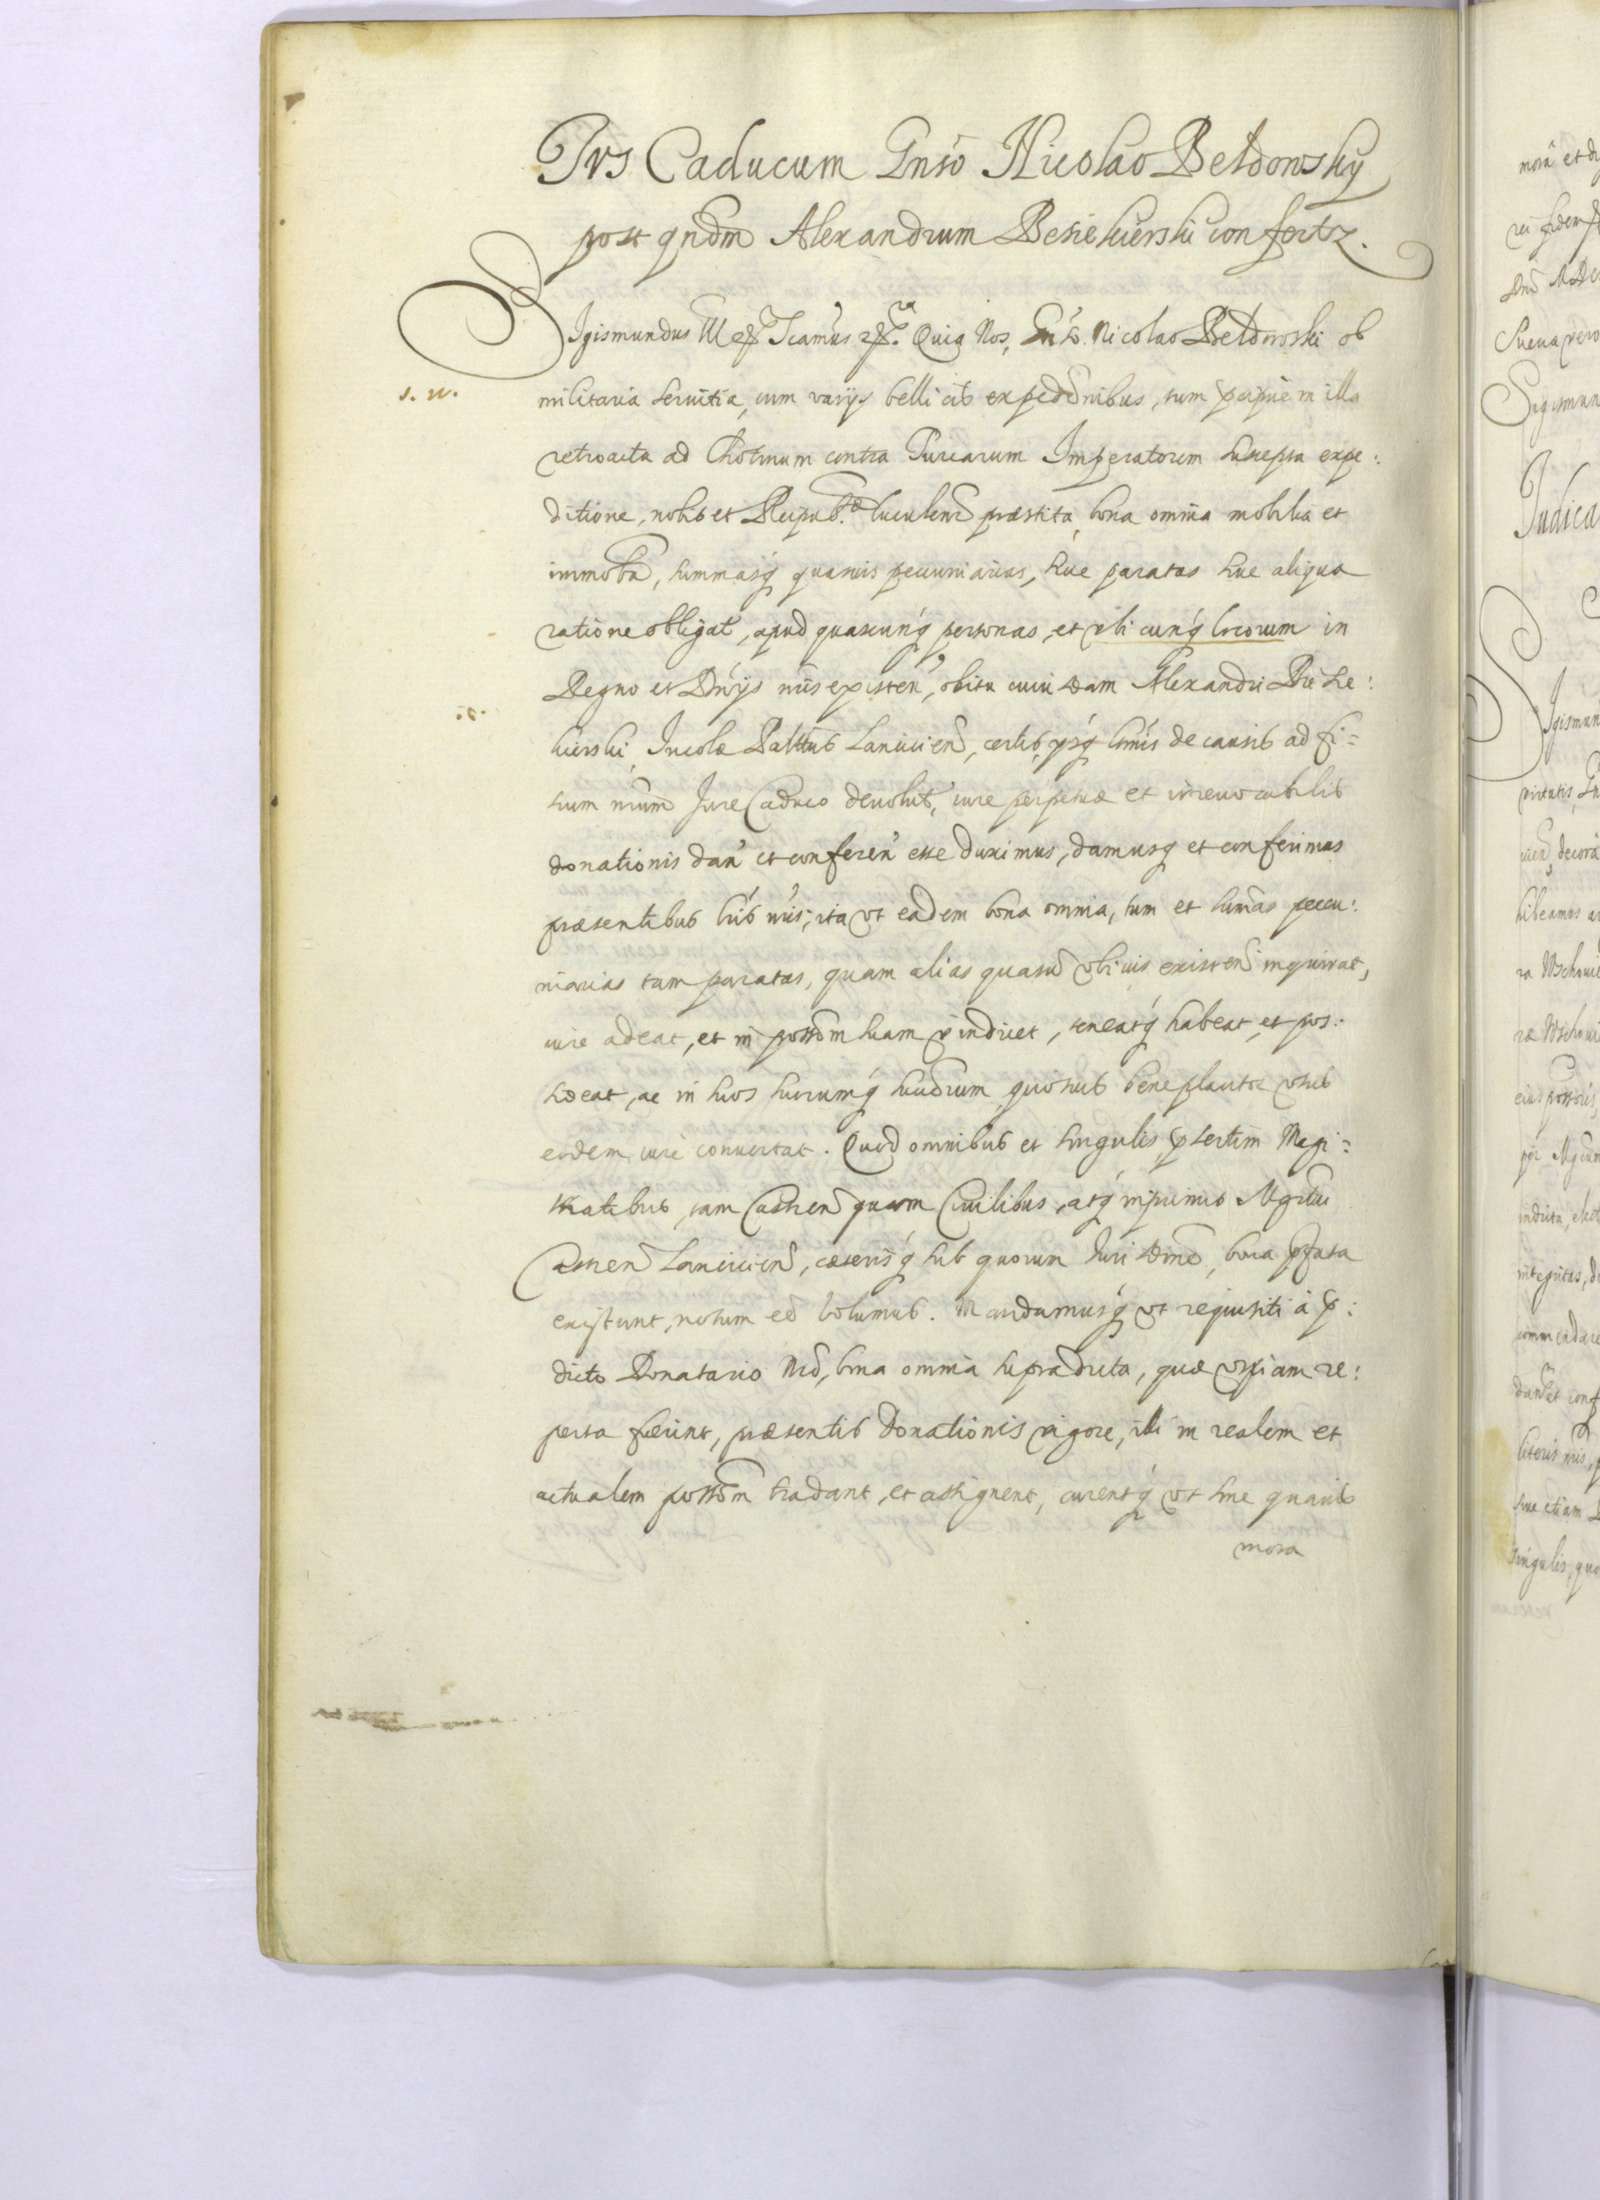 Jvs Caducum Gnso Nicolao Beldowsky
post qndm Alexandrum Besiekierski confertz.
Sigismundus III etc. Scamus etc. Quia Nos, Gnso. Nicolao Beldowski ob
s. n.
militaria seruitia, cum varijs bellicis expedonibus, tum pcipue in illa
retroacta ad Chotimum contra Turcarum Imperatorem suscepta expe:
ditione, nobis et Reipub. luculent præstita, bona omnia mobilia et
immobta, summasq quasuis pecuniarias, siue paratas siue aliqua
ratione obligat, apud quascunq personas, et vbicunq locorum in
Regno et Dnijs nris existen, obitu cuiusdam Alexandri Bie Le:
kierski, Incolæ Palttus Lanicien, certis, ijsq ltmis de causis ad fi=
scum nrum Jure Caduco deuolut, iure perpetuæ et irreuocabilis
donationis dan et conferen esse duximus, damusq et conferimus
præsentibus lris nris; ita vt eadem bona omnia, tum et sumas pecu:
niarias tam paratas, quam alias quasu vbiuis existen inquirat,
iure adeat, et in possom suam vindicet, teneatq habeat, et pos:
sideat, ac in suos suorumq succrum quosuis beneplacitos vsus
eodem iure conuertat. Quod omnibus et singulis, psertim Magi=
stratibus, tam Castren quam Ciuilibus, atq inprimis Mgrtui
Castren Lanicien, cæterisq sub quorum Jurisdine, bona pfata
existunt, notum ee volumus. Mandamusq vt requisiti à p:
dicto Donatario Nro, bona omnia supradicta, quæ vspiam re:
perta fuerint, præsentis Donationis vigore, illi in realem et
actualem possom tradant, et assignent, curentq vt sine quauis
mora